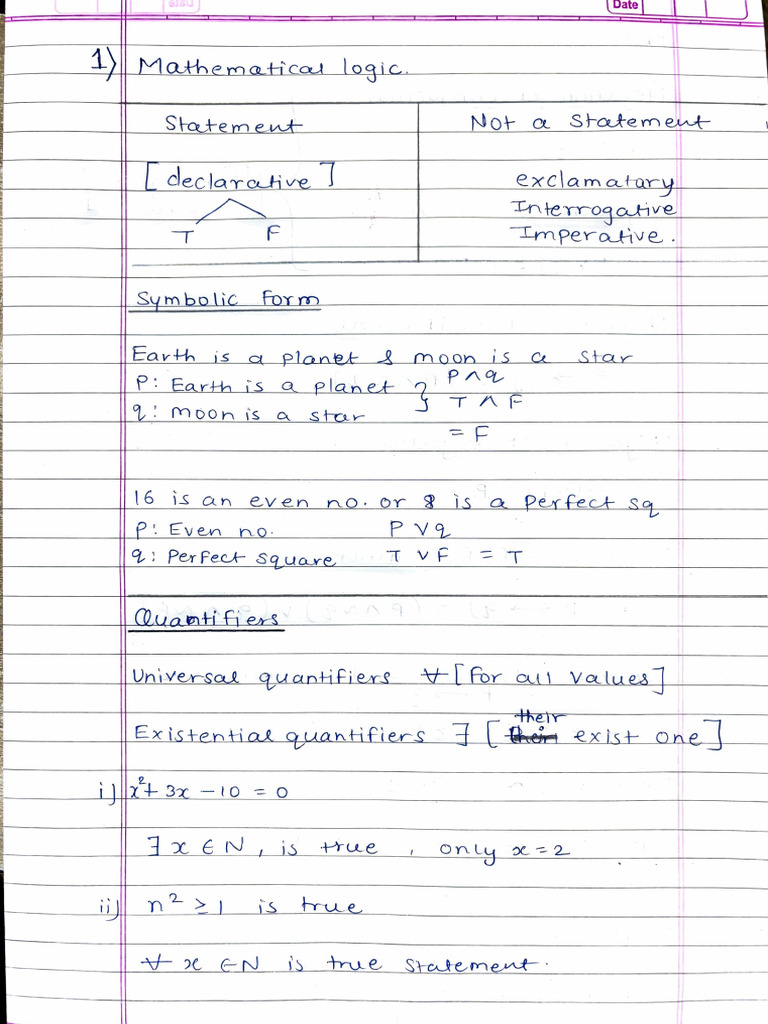 Date
1) Mathematical logic.
Statement
Not a Statement
[declarative]
T F
exclamatary
Interrogative
Imperative.
Symbolic Form
Earth is a planet & moon is a star
P: Earth is a planet } P∧q
q: moon is a star T ∧ F
= F
16 is an even no. or 8 is a perfect sq
P: Even no. P ∨ q
q: Perfect square T ∨ F = T
Quantifiers
Universal quantifiers ∀ [for all values]
Existential quantifiers ∃ [their exist one]
i) x²+ 3x − 10 = 0
∃ x ∈ N, is true, only x = 2
ii) n² ≥ 1 is true
∀ x ∈ N is true statement.